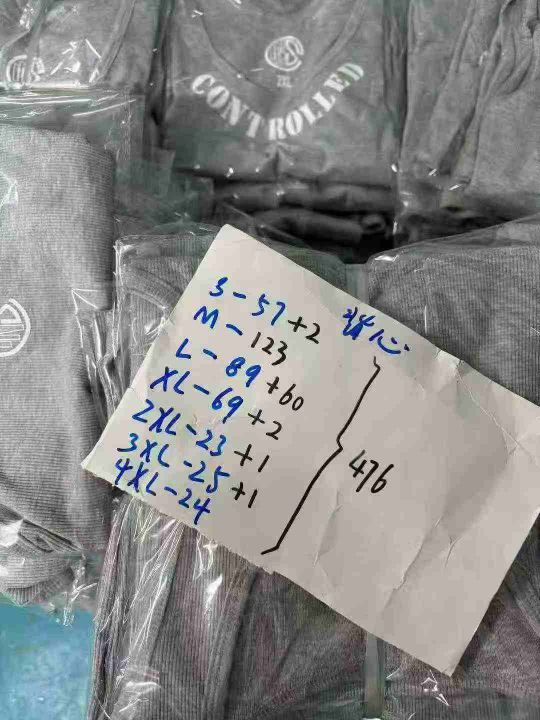 2XL
CONTROLLED
背心
S-57+2
M-123
L-89+60
XL-69+2
2XL-23+1
3XL-25+1
4XL-24
476